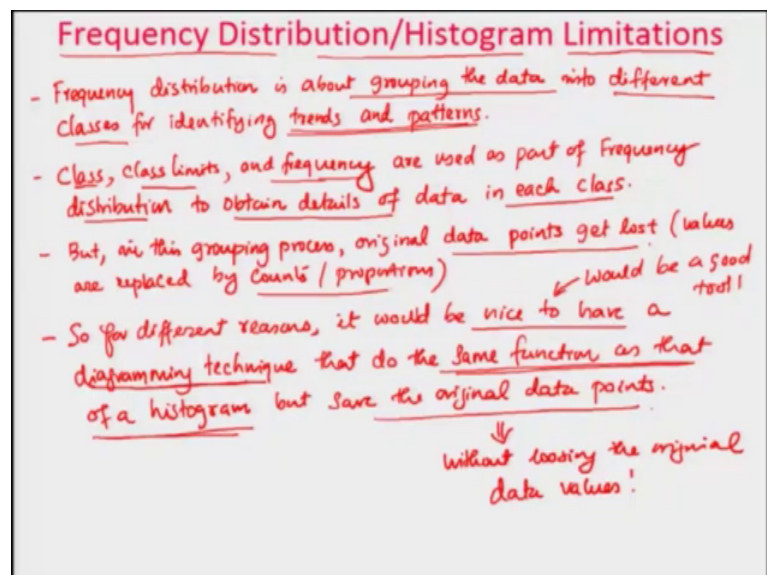 Frequency Distribution/Histogram Limitations
- Frequency distribution is about grouping the data into different
classes for identifying trends and patterns.
- Class, class limits, and frequency are used as part of Frequency
distribution to obtain details of data in each class.
- But, in this grouping process, original data points get lost (values
are replaced by counts / proportions)
would be a good
tool!
- So for different reasons, it would be nice to have a
diagramming technique that do the same function as that
of a histogram but save the original data points.
without loosing the original
data values!